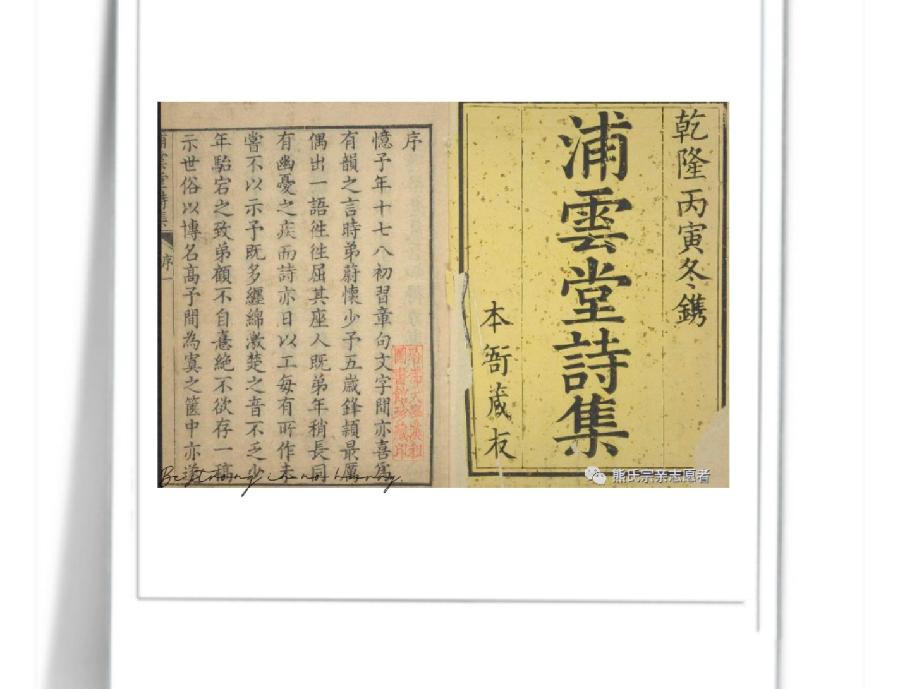 乾隆丙寅冬鐫
浦雲堂詩集
本衙藏板
序
憶予年十七八初習章句文字間亦喜為
有韻之言時弟蔚懷少予五歲鋒穎最厲
偶出一語徃徃屈其座人既弟年稍長同
有幽憂之疾而詩亦日以工每有所作未
嘗不以示予既多纏綿激楚之音不乏少
年駘宕之致弟顧不自憙絶不欲存一稿
示世俗以博名高予間為寘之篋中亦遂
浦雲堂詩集 序 一
哈佛大學漢和
圖書館珍藏印
熊氏宗亲志愿者